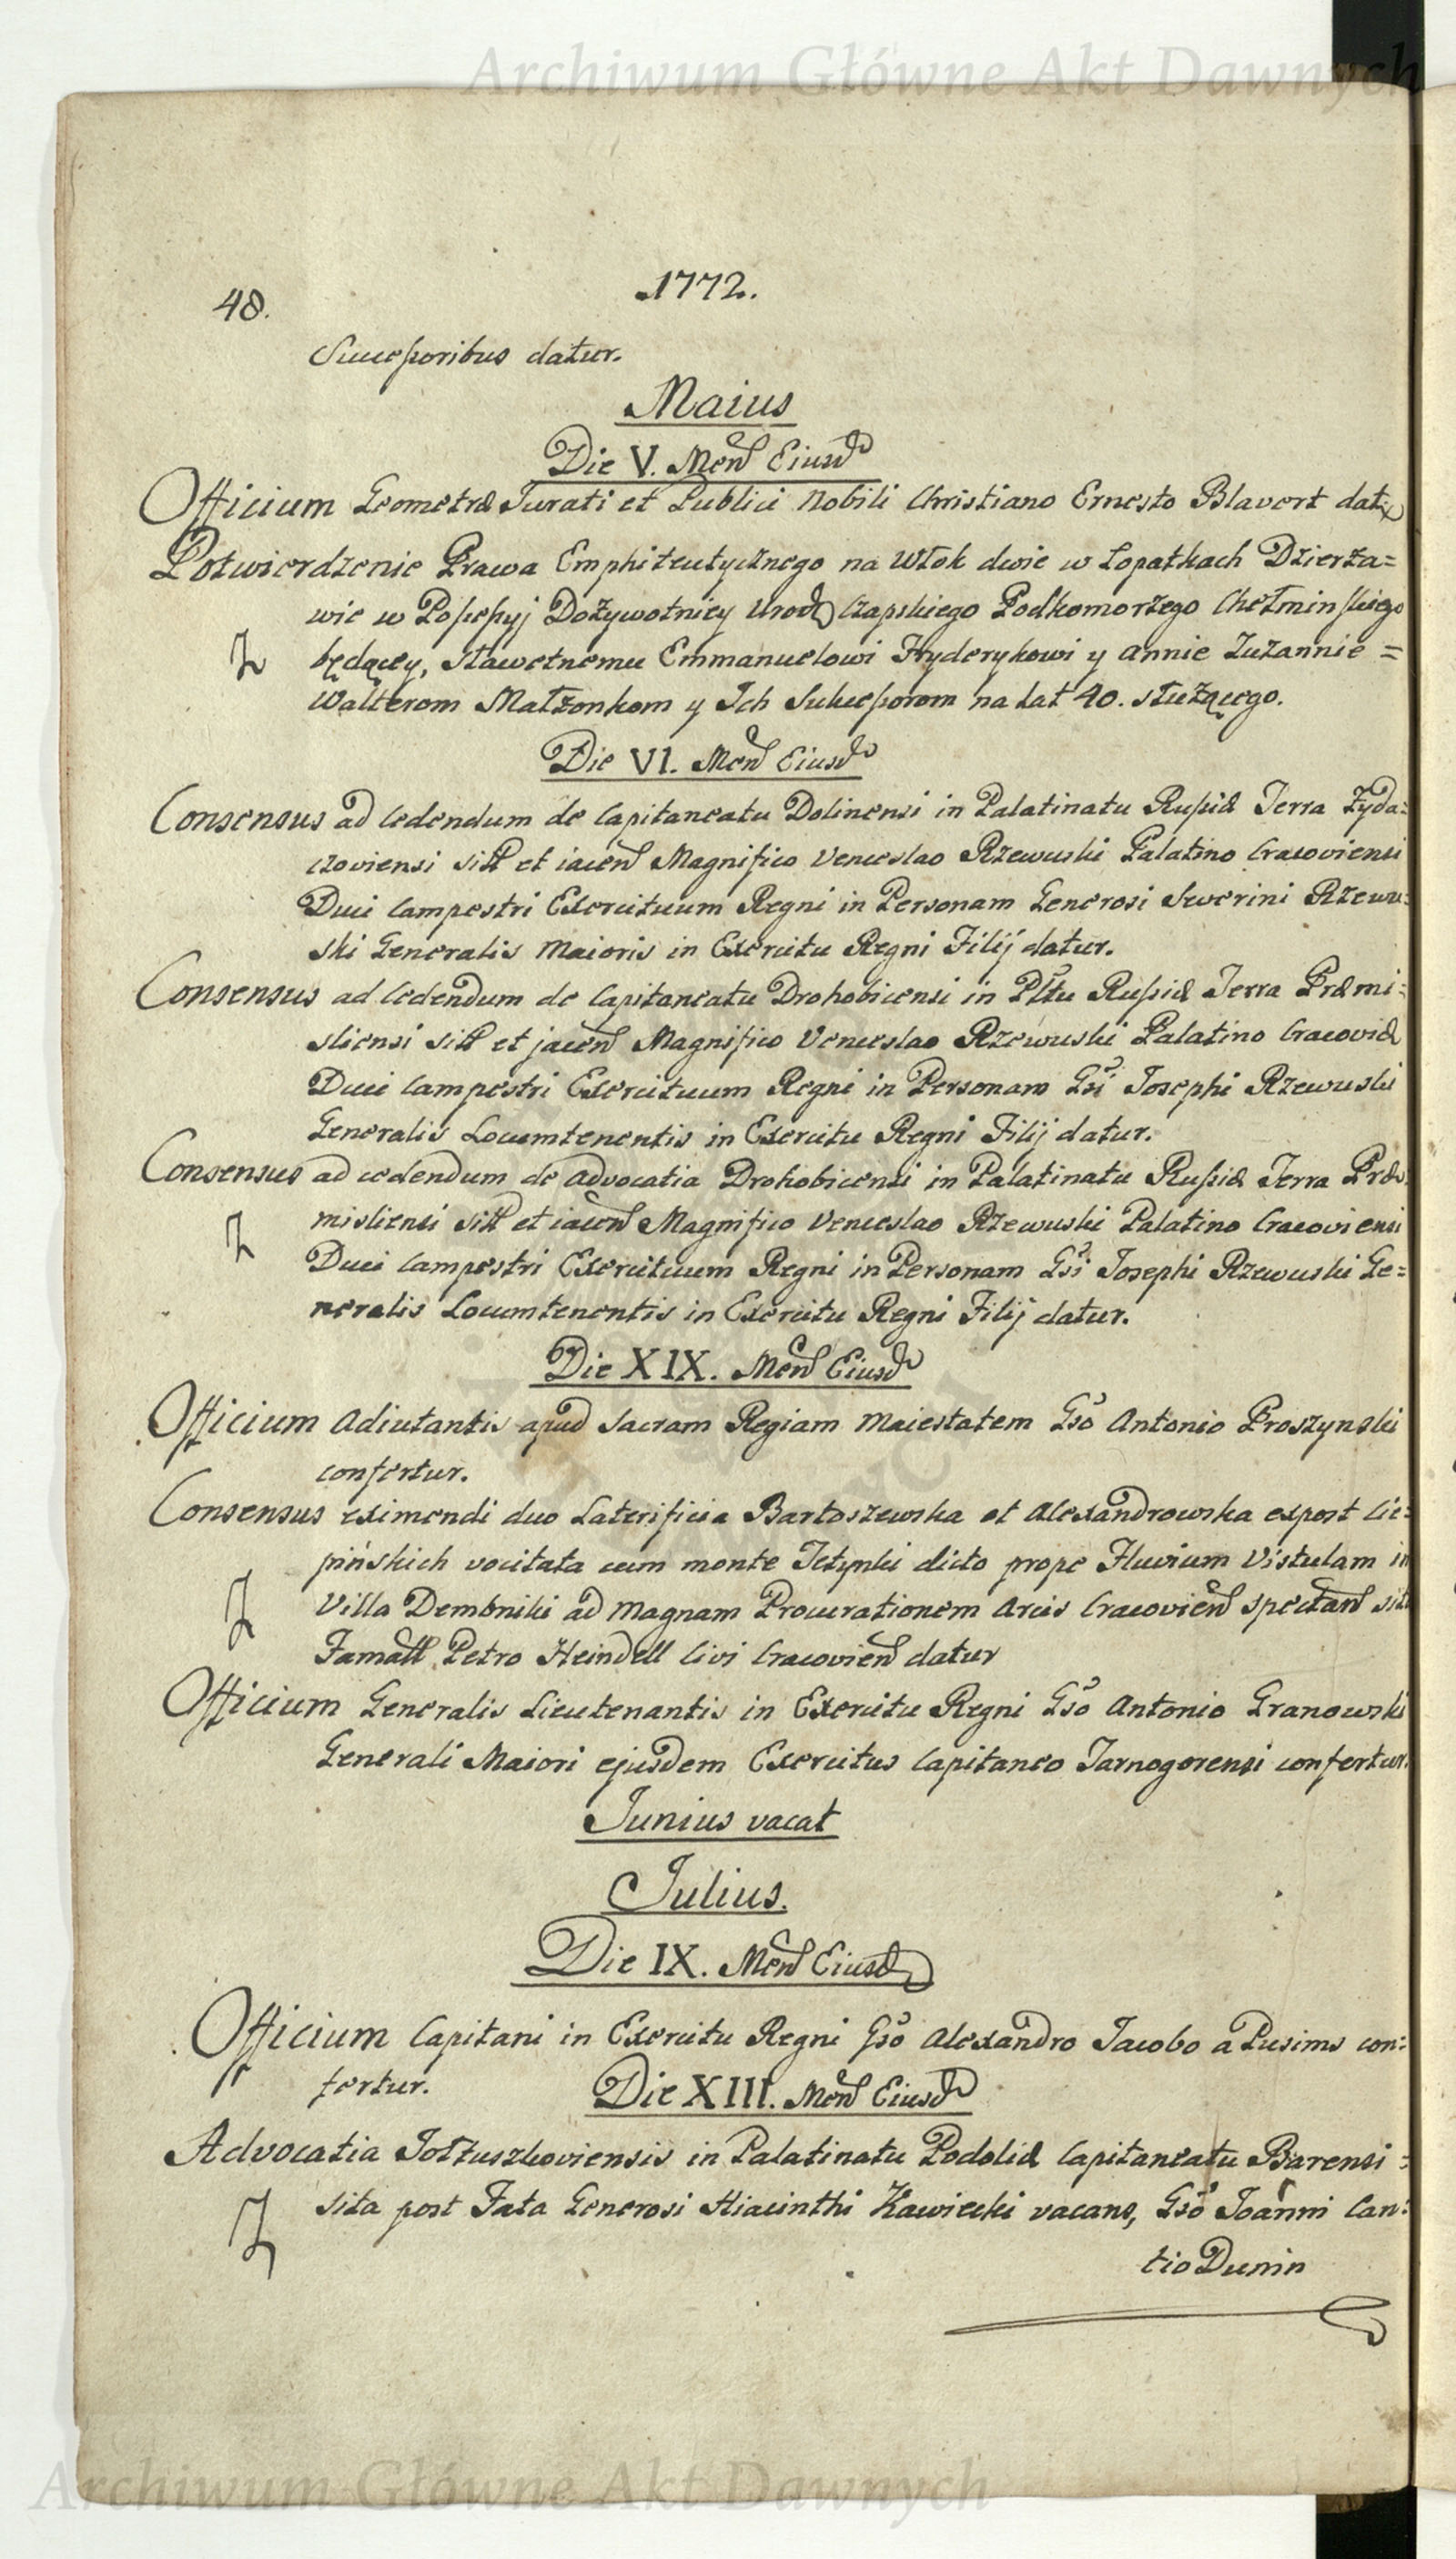 Archiwum Główne Akt Dawnych
1772.
48.
Successoribus datur.
Maius
Die V. Men Eiusd
Officium Geometræ Jurati et Publici Nobili Christiano Ernesto Blavert dat
Potwierdzenie Prawa Emphiteutycznego na Włok dwie w Łopatkach Dzierża=
wie w Possessyi Dożywotniey Urod Czapskiego Podkomorzego Chełminskiego
będącey, Sławetnemu Emmanuelowi Fryderykowi y Annie Zuzannie =
Walterom Małżonkom y Ich Sukcessorom na Lat 40. służącego.
Die VI. Men Eiusd
Consensus ad cedendum de Capitaneatu Dolinensi in Palatinatu Russiæ Terra Zyda=
czoviensi sitt et iacen Magnifico Venceslao Rzewuski Palatino Cracoviensi
Duci Campestri Exercituum Regni in Personam Generosi Severini Rzewu=
ski Generalis Maioris in Exercitu Regni Filij datur.
Consensus ad cedendum de Capitaneatu Drohobicensi in Pltu Russiæ Terra Præmi=
sliensi sitt et jacen Magnifico Venceslao Rzewuski Palatino Cracoviæ
Duci Campestri Exercituum Regni in Personam Gsi Josephi Rzewuski
Generalis Locumtenentis in Exercitu Regni Filij datur.
Consensus ad cedendum de Advocatia Drohobicensi in Palatinatu Russiæ Terra Præ
misliensi sitt et iacen Magnifico Venceslao Rzewuski Palatino Cracoviensi
Duci Campestri Exercituum Regni in Personam Gsi Josephi Rzewuski Ge=
neralis Locumtenentis in Exercitu Regni Filij datur.
Die XIX. Men Eiusd
Officium Adiutantis apud Sacram Regiam Maiestatem Gso Antonio Proszynski
confertur.
Consensus eximendi duo Laterificia Bartoszewska et Alexandrowska expost Cie=
pińskich vocitata cum monte dicto prope Fluvium Vistulam in
Villa Dembniki ad Magnam Procurationem Arcis Cracovien spectan sit
Famatt Petro Heindell Civi Cracovien datur
Officium Generalis Lieutenantis in Exercitu Regni Gso Antonio Granowski
Generali Maiori ejusdem Exercitus Capitaneo Tarnogorensi confertur.
Junius vacat
Julius.
Die IX. Men Eiusd
Officium Capitani in Exercitu Regni Gso Alexandro Jacobo a Pusims con=
fertur.
Die XIII. Men Eiusd
Advocatia Jołtuszkoviensis in Palatinatu Podoliæ Capitaneatu Barensi =
sita post Fata Generosi Hiacinthi Kawiecki vacans, Gso Joanni Can=
tio Dunin
Archiwum Główne Akt Dawnych